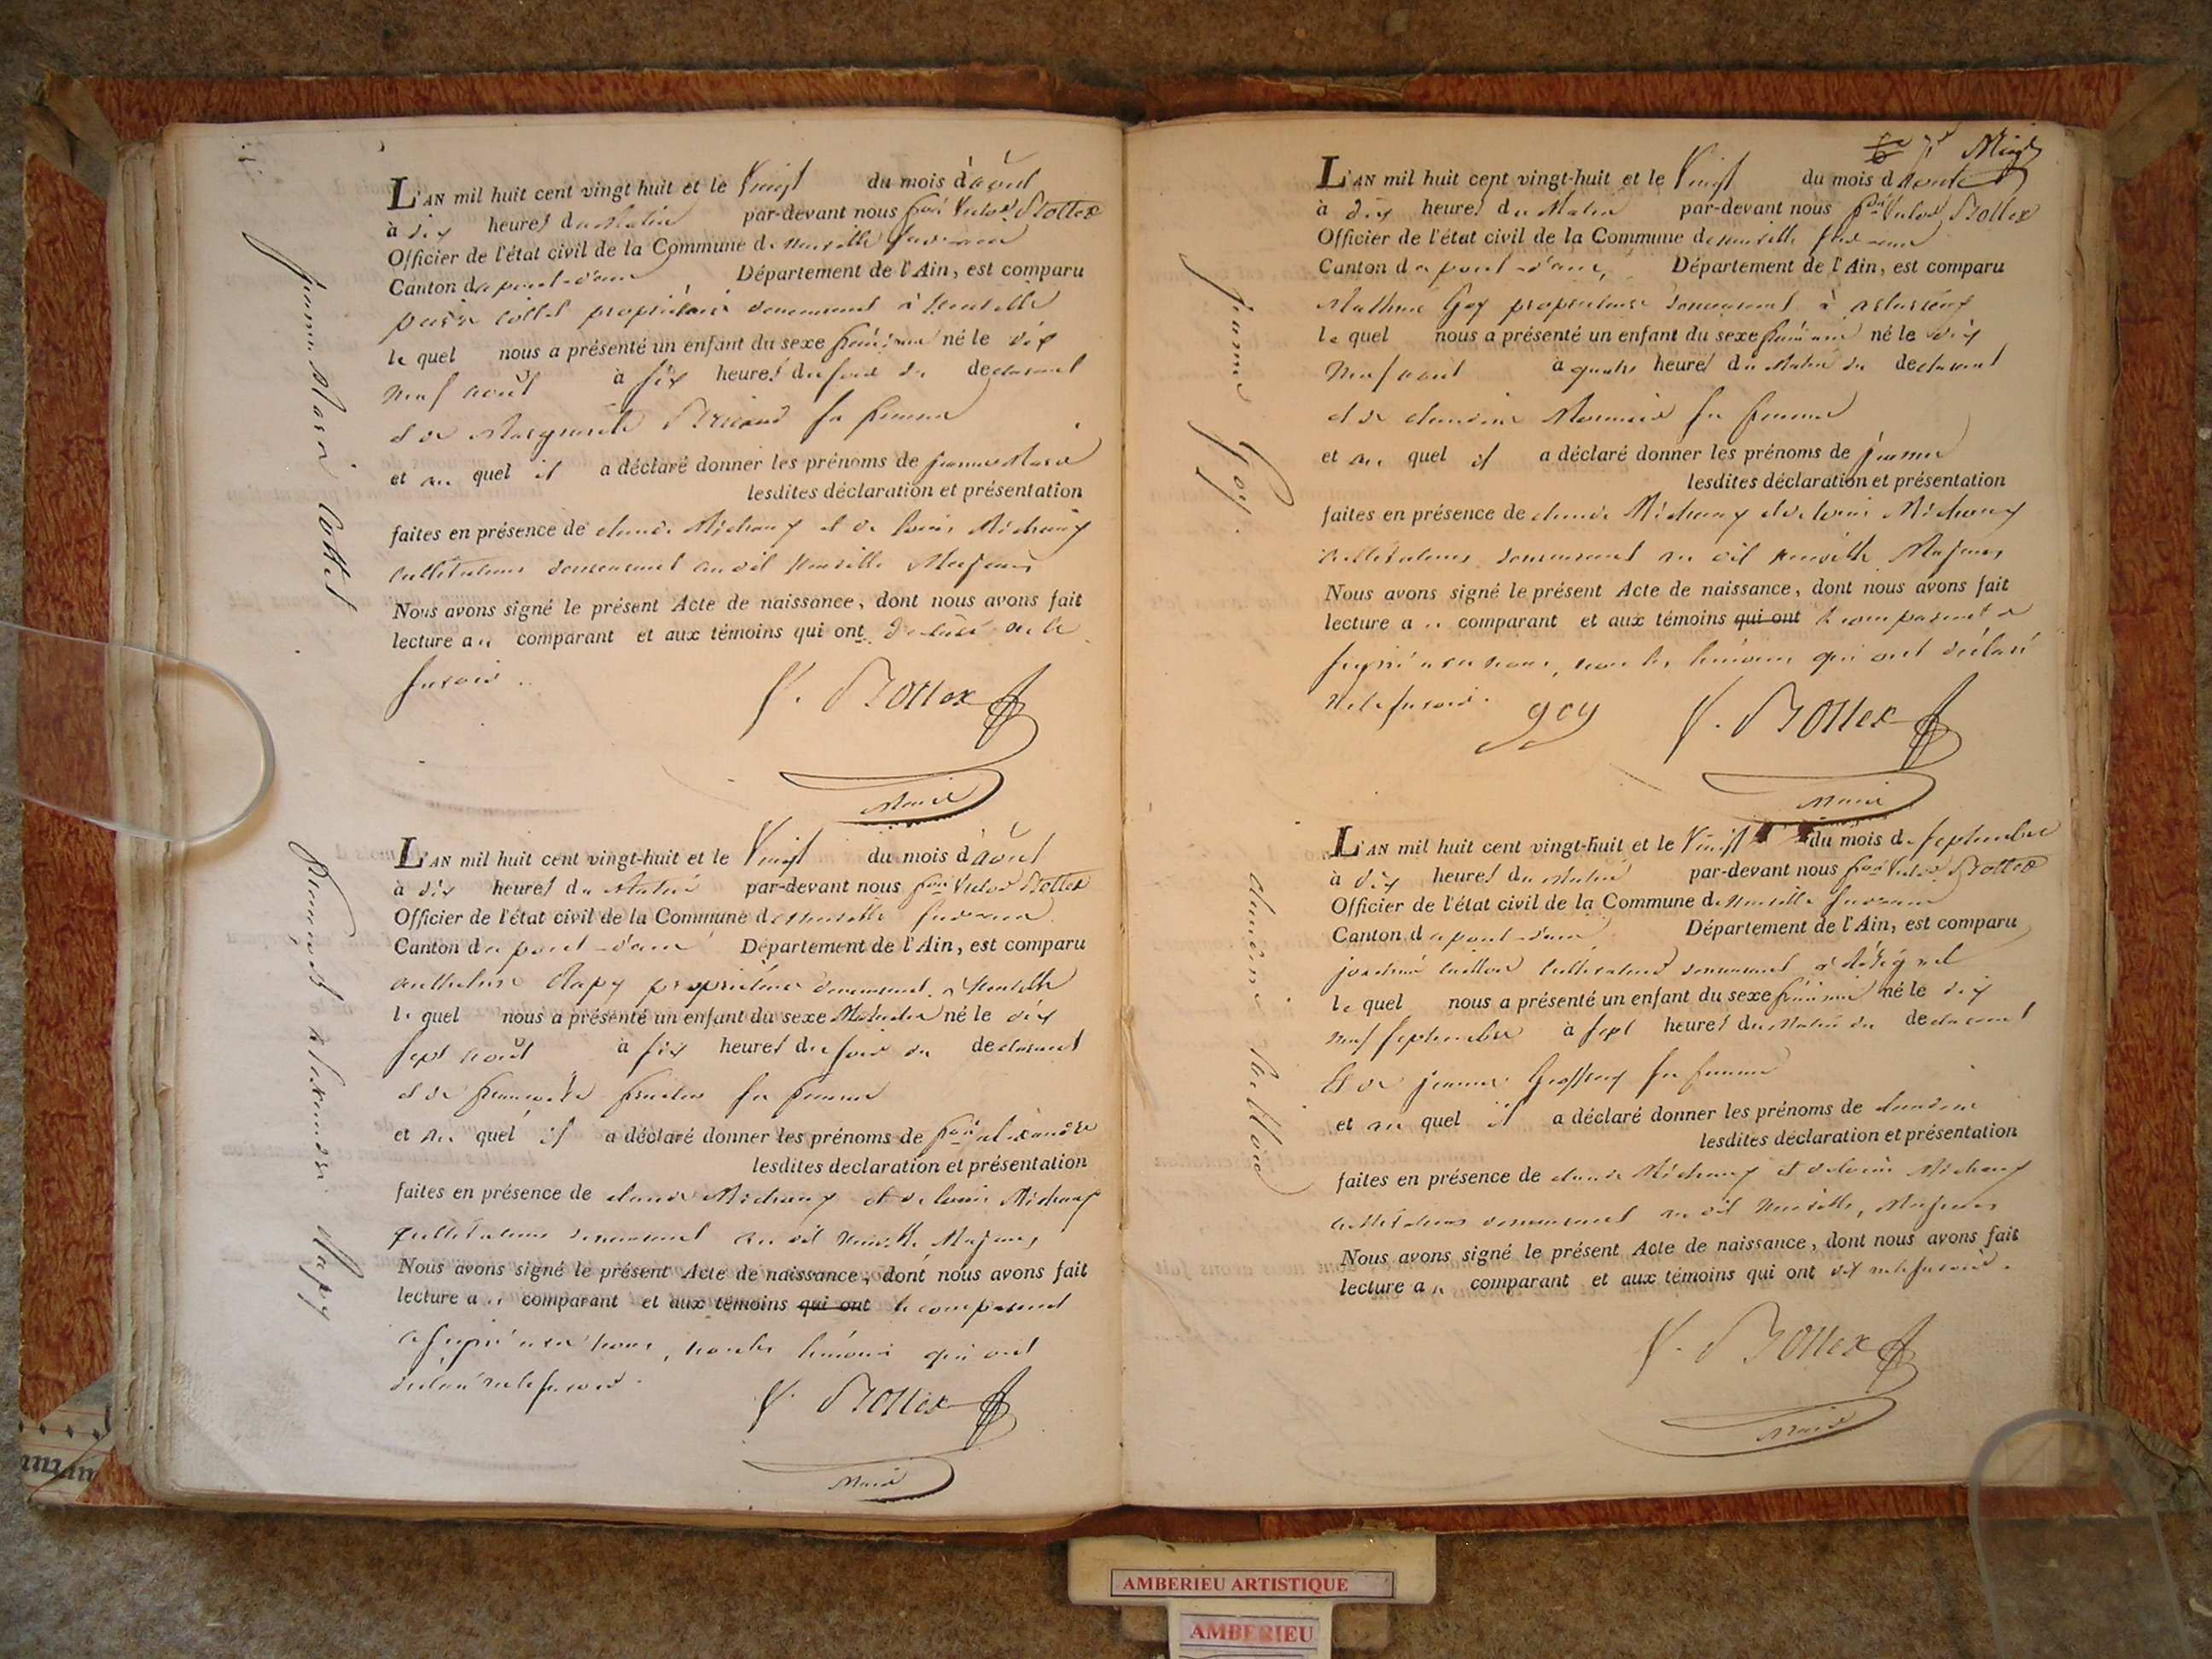 L'AN mil huit cent vingt huit et le Vingt du mois d'août
à dix heures du Matin par-devant nous fçois Victor Bottex
Officier de l'état civil de la Commune de neuville sur ain
Canton de pont-d'ain Département de l'Ain, est comparu
collet propriétaire demeurant à Neuville
le quel nous a présenté un enfant du sexe féminin né le dix
neuf août à six heures du soir du declarant
et de Marguerite sa femme
et au quel il a déclaré donner les prénoms de jeanne Marie
lesdites déclaration et présentation
faites en présence de claude Michaux et de louis Michaux
cultivateurs demeurant au dit Neuville Majeurs
Nous avons signé le présent Acte de naissance, dont nous avons fait
lecture au comparant et aux témoins qui ont déclaré ne le
savoir.
V. Bottex
Maire
jeanne Marie Collet
L'AN mil huit cent vingt-huit et le Vingt du mois d'août
à dix heures du Matin par-devant nous fçois Victor Bottex
Officier de l'état civil de la Commune de neuville sur ain
Canton de pont-d'ain Département de l'Ain, est comparu
anthelme propriétaire demeurant à Neuville
le quel nous a présenté un enfant du sexe Masculin né le dix
sept août à six heures du soir du declarant
et de sa femme
et au quel il a déclaré donner les prénoms de fçois alexandre
lesdites declaration et présentation
faites en présence de claude Michaux et de louis Michaux
cultivateurs demeurant au dit Neuville Majeurs
Nous avons signé le présent Acte de naissance, dont nous avons fait
lecture au comparant et aux témoins qui ont le comparant
a signé avec nous, non les témoins qui ont
déclaré ne le savoir.
V. Bottex
Maire
françois alexandre
L'AN mil huit cent vingt-huit et le Vingt du mois d'août
à dix heures du Matin par-devant nous fçois Victor Bottex
Officier de l'état civil de la Commune de neuville sur ain
Canton de pont-d'ain, Département de l'Ain, est comparu
Goy propriétaire demeurant à
le quel nous a présenté un enfant du sexe féminin né le dix
neuf août à quatre heures du Matin du declarant
et de claudine sa femme
et au quel il a déclaré donner les prénoms de jeanne
lesdites déclaration et présentation
faites en présence de claude Michaux et de louis Michaux
cultivateurs demeurant au dit neuville Majeurs
Nous avons signé le présent Acte de naissance, dont nous avons fait
lecture au comparant et aux témoins qui ont le comparant a
signé avec nous, non les témoins qui ont déclaré
ne le savoir.
goy V. Bottex
Maire
jeanne Goy.
L'AN mil huit cent vingt-huit et le Vingt du mois de septembre
à dix heures du Matin par-devant nous fçois Victor Bottex
Officier de l'état civil de la Commune de Neuville sur ain
Canton de pont-d'ain Département de l'Ain, est comparu
cultivateur demeurant à
le quel nous a présenté un enfant du sexe féminin né le dix
neuf septembre à sept heures du Matin du declarant
et de jeanne sa femme
et au quel il a déclaré donner les prénoms de claudine
lesdites déclaration et présentation
faites en présence de claude Michaux et de louis Michaux
cultivateurs demeurant au dit Neuville, Majeurs
Nous avons signé le présent Acte de naissance, dont nous avons fait
lecture au comparant et aux témoins qui ont dit ne le savoir.
V. Bottex
Maire
claudine
AMBERIEU ARTISTIQUE
AMBERIEU